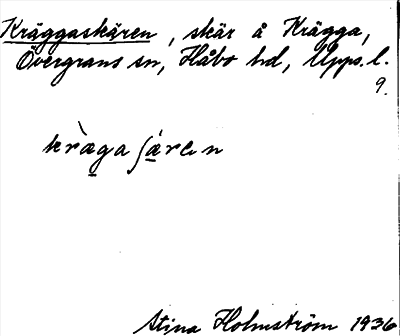 Kräggaskären, skär å Krägga,
Övergrans sn, Håbo hd, Upps. l.
9.
kràga ʃärɩn
Stina Holmström 1936